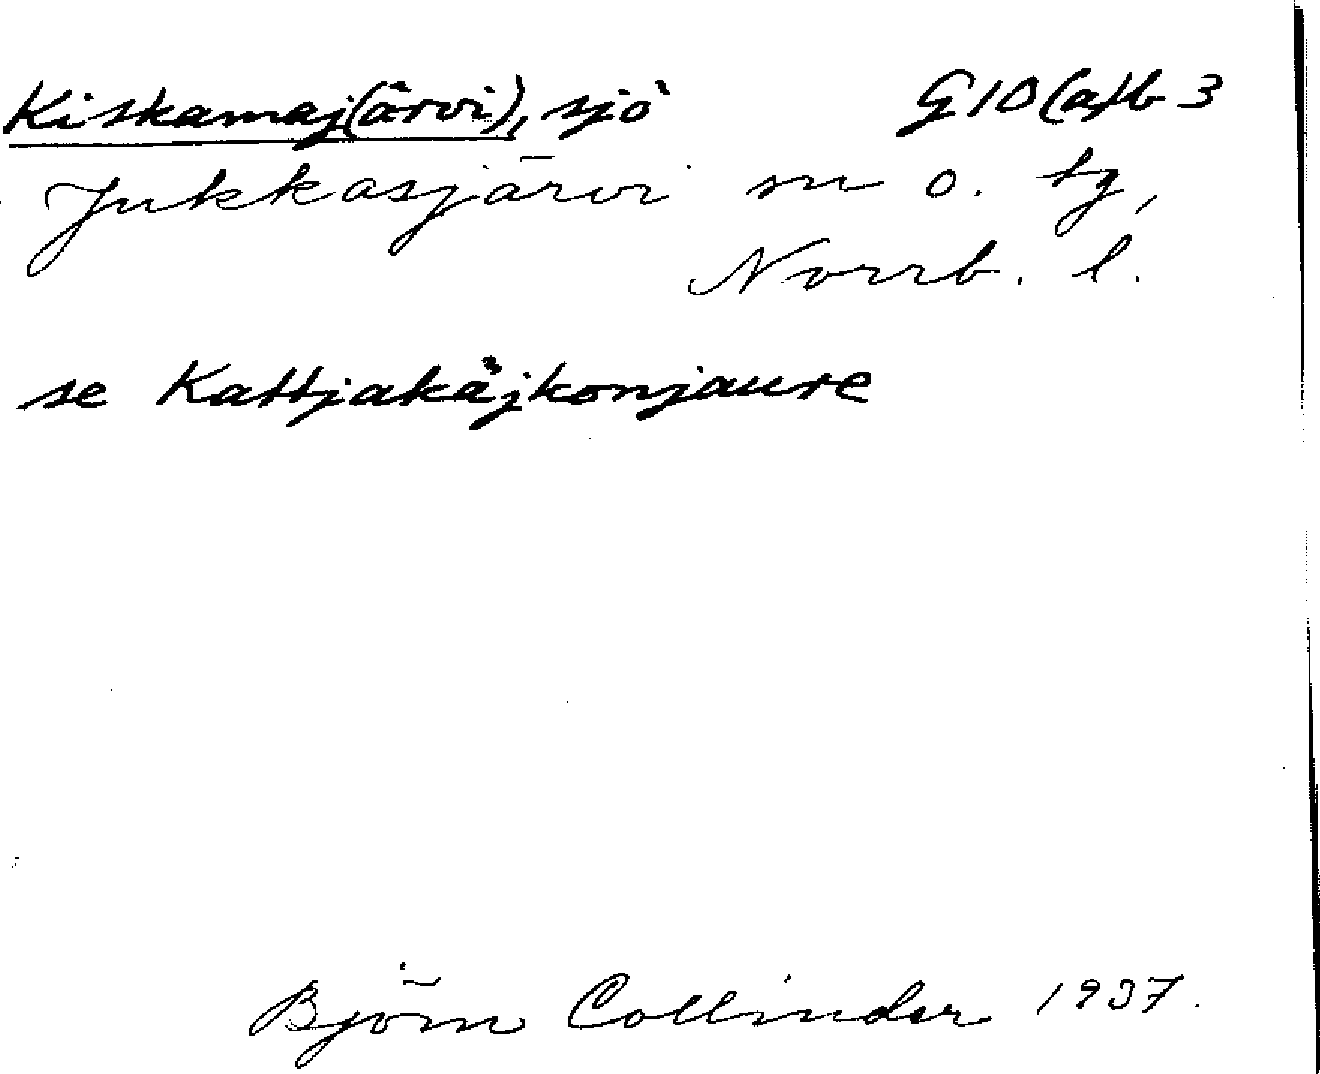 Kiskamaj(ärvi), sjö G10(a)b 3
Jukkasjärvi sn o. tg,
Norrb. l.
se Kattjakäjkonjaure
Björn Collinder 1937.